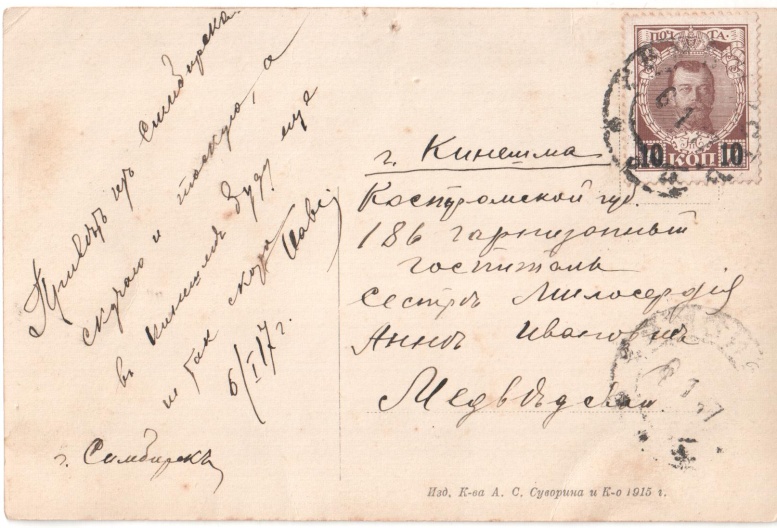 Привѣт из Симбирска.
скучаю и тоскую, а
въ Кинешмѣ буду еще
не так скоро
6/I 17 г.
г. Симбирскъ
ПОЧТА.
10 КОП 10
г. Кинешма
Костромской губ.
186 гарнизонный
госпиталь
Сестрѣ Милосердія
Аннѣ Ивановнѣ
Медвѣдской
Изд. К-ва А. С. Суворина и К-о 1915 г.